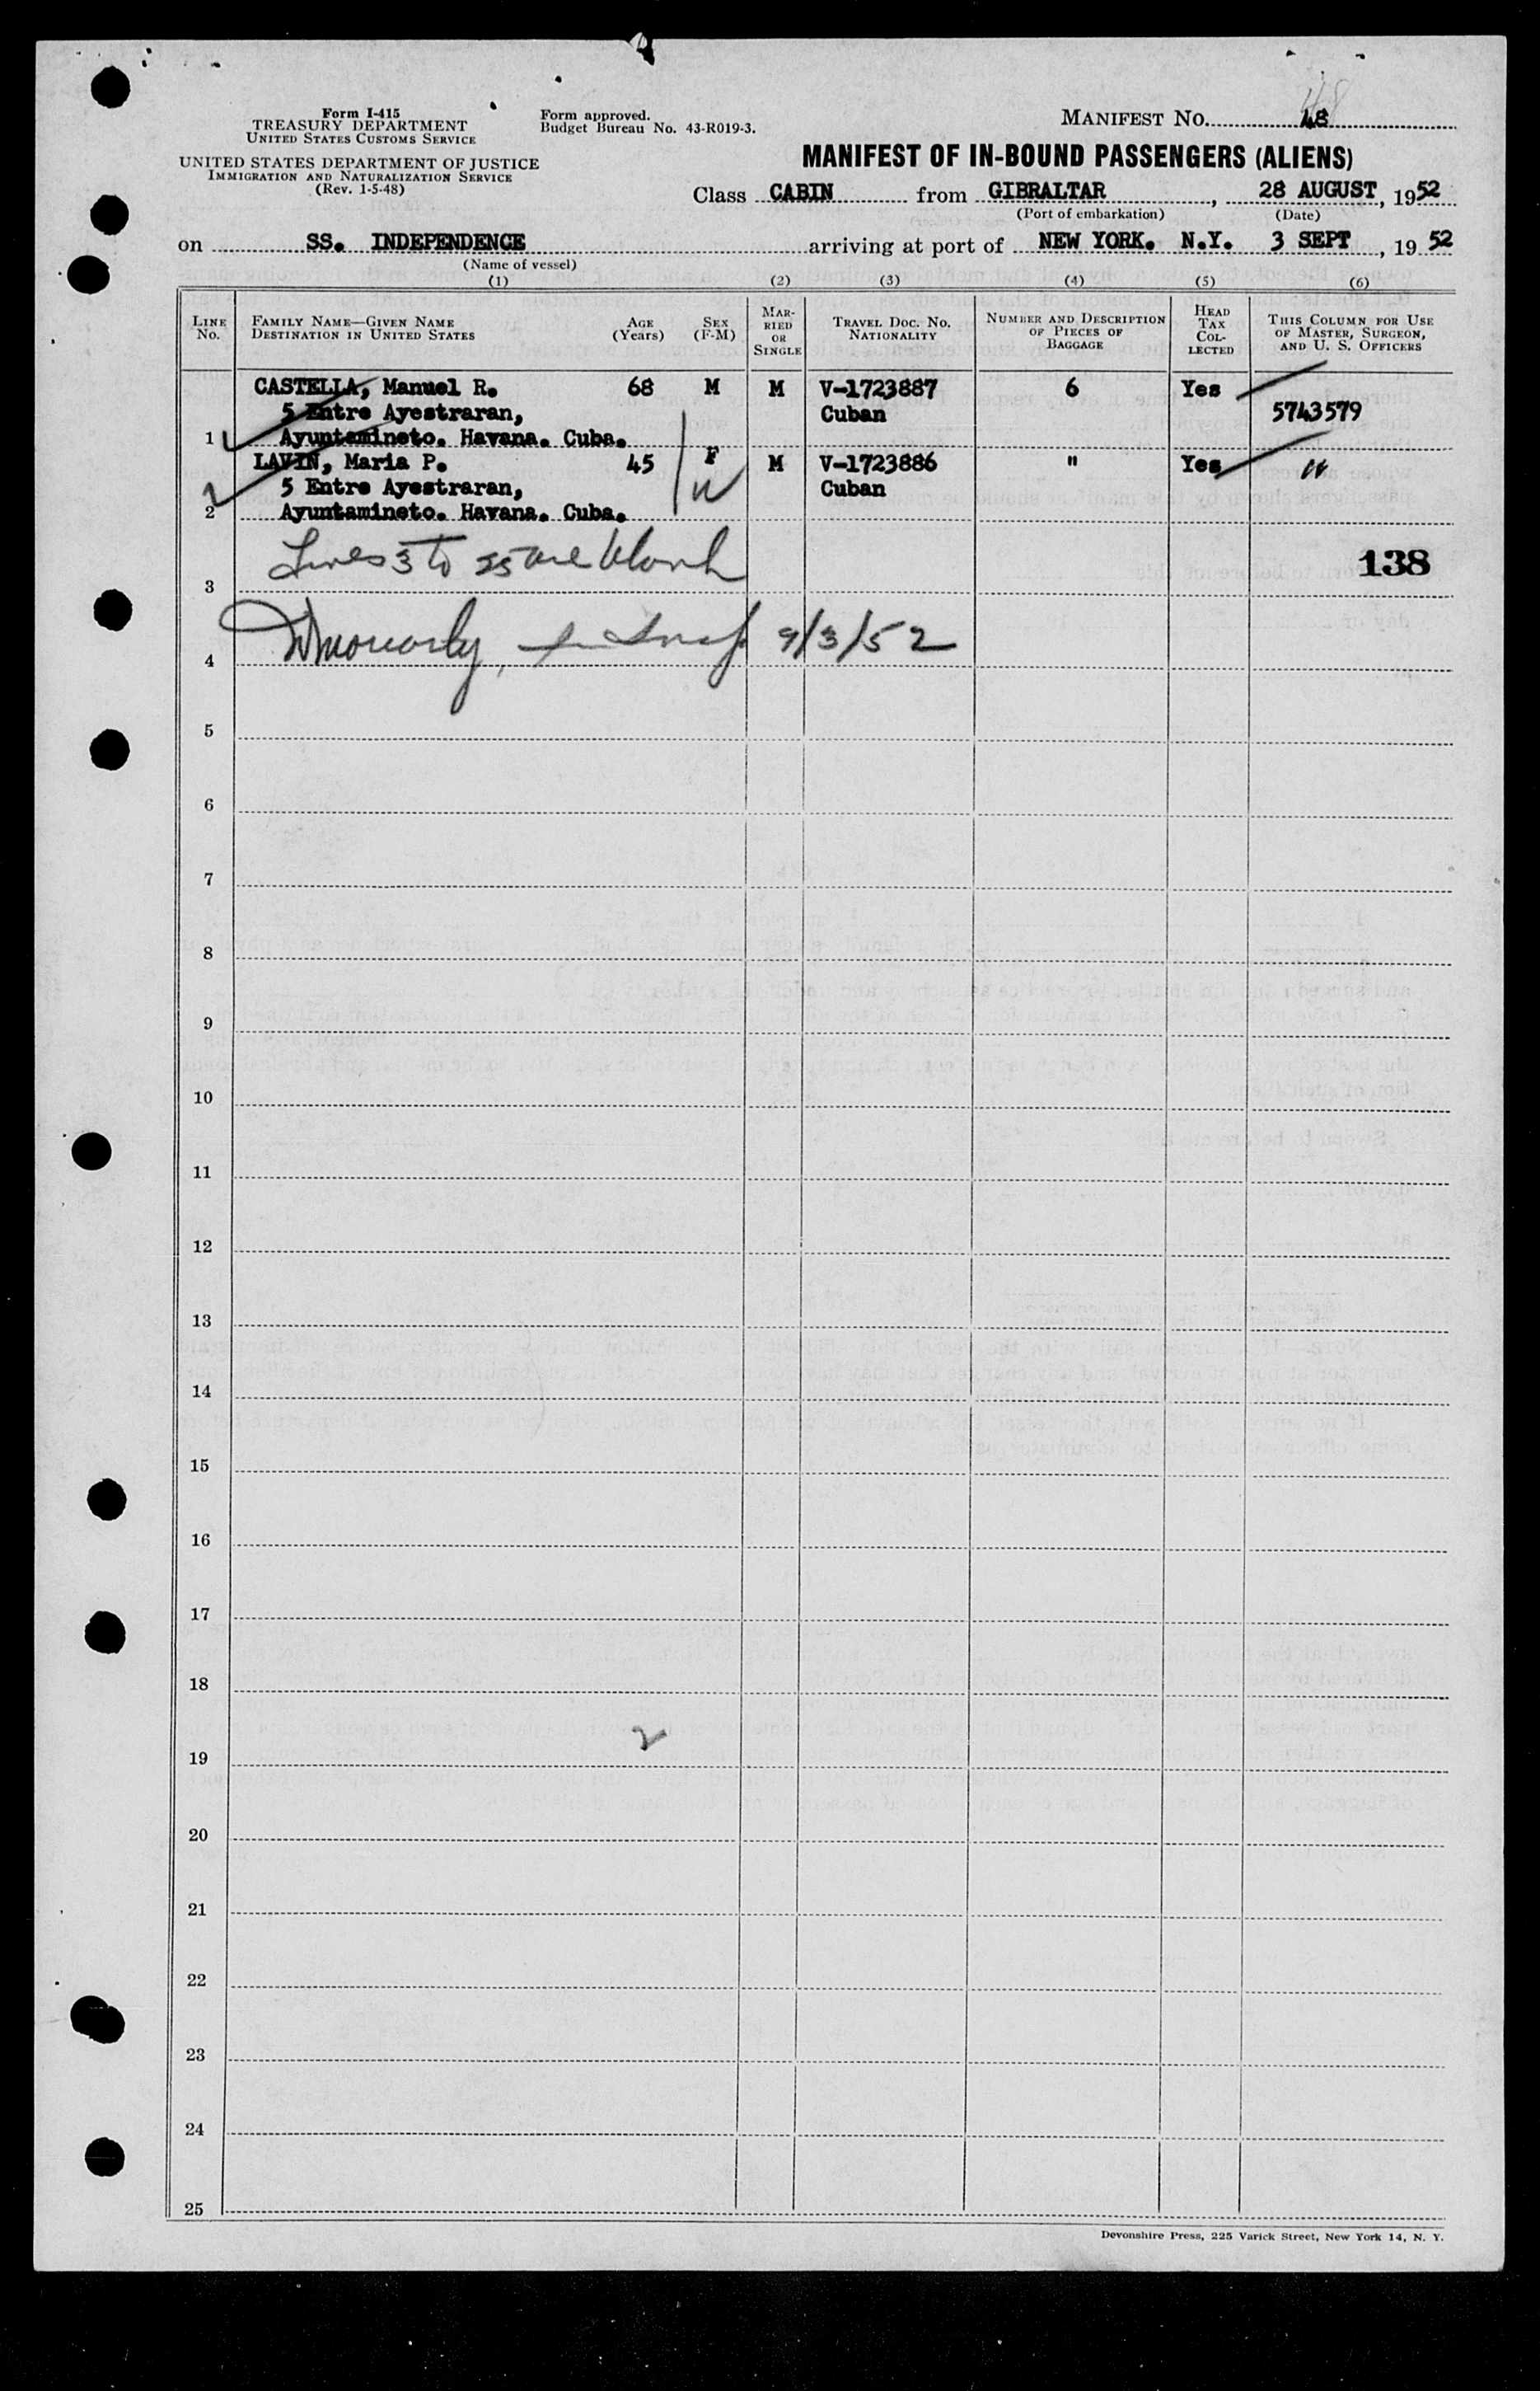 Form I-415
TREASURY DEPARTMENT
UNITED STATES CUSTOMS SERVICE
UNITED STATES DEPARTMENT OF JUSTICE
IMMIGRATION AND NATURALIZATION SERVICE
(Rev. 1-5-48)
Form approved.
Budget Bureau No. 43-R019-3.
MANIFEST No. 48
MANIFEST OF IN-BOUND PASSENGERS (ALIENS)
Class CABIN from GIBRALTAR, 28 AUGUST, 1952
(Port of embarkation) (Date)
on SS. INDEPENDENCE arriving at port of NEW YORK. N.Y. 3 SEPT, 1952
(Name of vessel)
(1) (2) (3) (4) (5) (6)
LINE No.
FAMILY NAME—GIVEN NAME
DESTINATION IN UNITED STATES
AGE (Years)
SEX (F-M)
MARRIED OR SINGLE
TRAVEL DOC. NO.
NATIONALITY
NUMBER AND DESCRIPTION OF PIECES OF BAGGAGE
HEAD TAX COLLECTED
THIS COLUMN FOR USE OF MASTER, SURGEON, AND U. S. OFFICERS
CASTELLA, Manuel R. 68 M M V-1723887 6 Yes
5 Entre Ayestraran, Cuban 5743579
1 Ayuntamineto. Havana. Cuba.
LAVIN, Maria P. 45 F M V-1723886 " Yes "
5 Entre Ayestraran, Cuban
2 Ayuntamineto. Havana. Cuba.
Lines 3 to 25 are blank
138
3
9/3/52
4
5
6
7
8
9
10
11
12
13
14
15
16
17
18
2
19
20
21
22
23
24
25
Devonshire Press, 225 Varick Street, New York 14, N. Y.